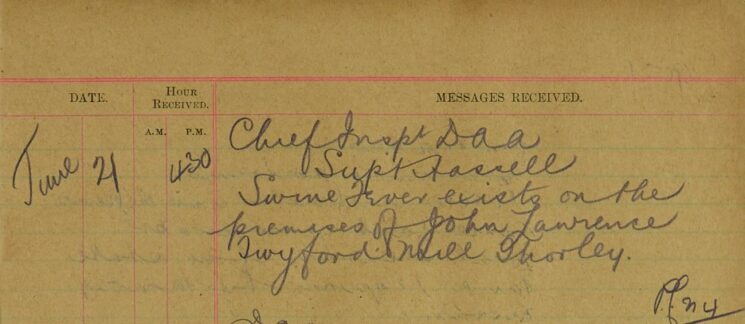 DATE. HOUR RECEIVED. MESSAGES RECEIVED.
A.M. P.M.
June 21 430 Chief Inspt D A A
Supt Hassell
Swine Fever exists on the
premises of John Lawrence
Twyford Mill Thorley.